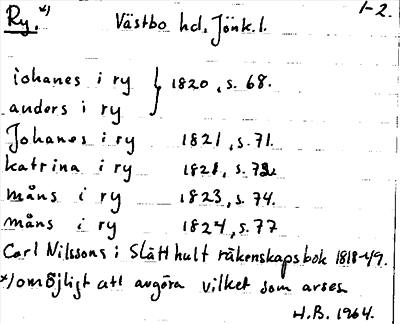 Ry. *) Västbo hd. Jönk. l. 1-2.
iohanes i ry } 1820, s. 68.
anders i ry
Johanes i ry 1821, s. 71.
katrina i ry 1821, s. 72.
måns i ry 1823, s. 74.
måns i ry 1824, s. 77
Carl Nilssons i Slätthult räkenskapsbok 1818-49.
*) omöjligt att avgöra vilket som avses
H.B. 1964.